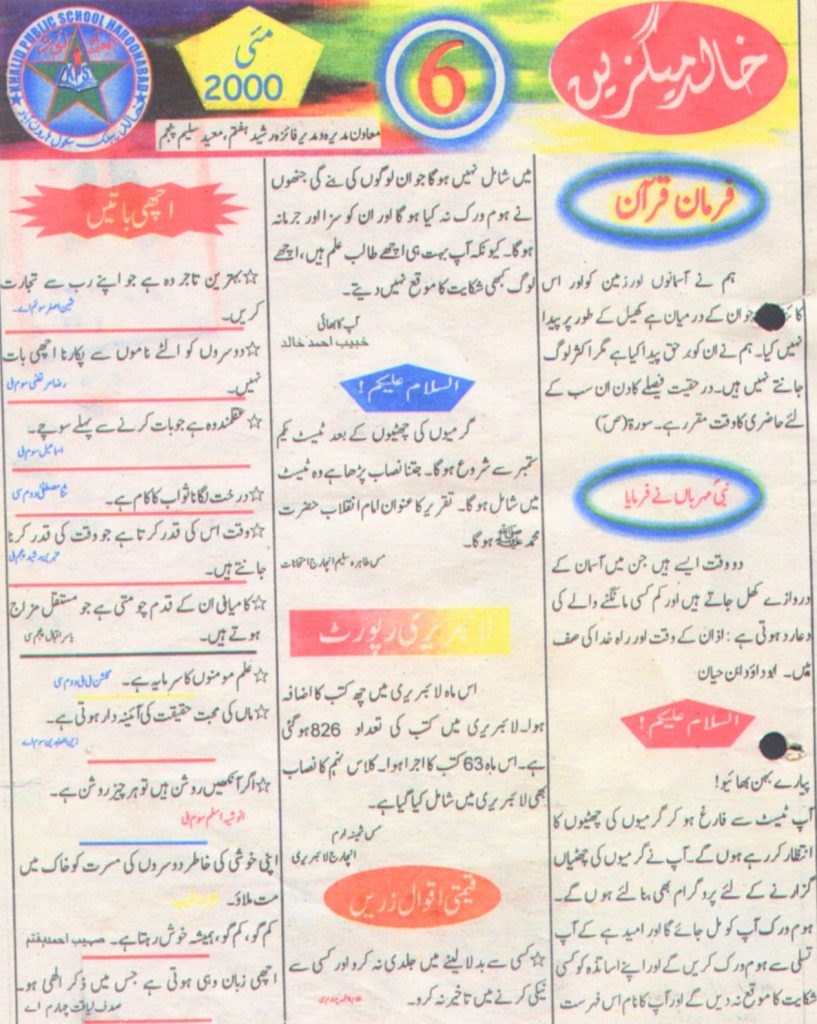 KHALID PUBLIC SCHOOL HAROONABAD
K.P.S
خالد پبلک سکول ہارون آباد
مئی
2000
6
خالد میگزین
معاون مدیرہ و مدیر فائزہ رشید ہفتم، معید سلیم پنجم
فرمان قرآن
ہم نے آسمانوں اور زمین کو اور اس
جو ان کے درمیان ہے کھیل کے طور پر پیدا
نہیں کیا۔ ہم نے ان کو برحق پیدا کیا ہے مگر اکثر لوگ
جانتے نہیں ہیں۔ در حقیقت فیصلے کا دن ان سب کے
لئے حاضری کا وقت مقرر ہے۔ سورۃ (صٓ)
نبیؐ مہرباں نے فرمایا
دو وقت ایسے ہیں جن میں آسمان کے
دروازے کھل جاتے ہیں اور کم کسی مانگنے والے کی
دعا رد ہوتی ہے : اذان کے وقت اور راہ خدا کی صف
میں۔ ابوداؤد ابن حبان
السلام علیکم!
پیارے بہن بھائیو!
آپ ٹیسٹ سے فارغ ہو کر گرمیوں کی چھٹیوں کا
انتظار کر رہے ہوں گے۔ آپ نے گرمیوں کی چھٹیاں
گزارنے کے لئے پروگرام بھی بنا لئے ہوں گے۔
ہوم ورک آپ کو مل جائے گا اور امید ہے کے آپ
تسلی سے ہوم ورک کریں گے اور اپنے اساتذہ کو کسی
شکایت کا موقع نہ دیں گے اور آپ کا نام اس فہرست
میں شامل نہیں ہوگا جو ان لوگوں کی بنے گی جنھوں
نے ہوم ورک نہ کیا ہوگا اور ان کو سزا اور جرمانہ
ہوگا۔ کیونکہ آپ بہت ہی اچھے طالب علم ہیں، اچھے
لوگ کبھی شکایت کا موقع نہیں دیتے۔
آپ کا بھائی
خبیب احمد خالد
السلام علیکم!
گرمیوں کی چھٹیوں کے بعد ٹیسٹ یکم
ستمبر سے شروع ہوگا۔ جتنا نصاب پڑھا ہے وہ ٹیسٹ
میں شامل ہوگا۔ تقریر کا عنوان امام انقلاب حضرت
محمد ﷺ ہوگا۔
مس طاہرہ سلیم انچارج امتحانات
لائبریری رپورٹ
اس ماہ لائبریری میں چھ کتب کا اضافہ
ہوا۔ لائبریری میں کتب کی تعداد 826 ہوگئی
ہے۔ اس ماہ 63 کتب کا اجرا ہوا۔ کلاس نہم کا نصاب
بھی لائبریری میں شامل کیا گیا ہے۔
مس ثمینہ ارم
انچارج لائبریری
قیمتی اقوال زریں
☆کسی سے بدلا لینے میں جلدی نہ کرو اور کسی سے
نیکی کرنے میں تاخیر نہ کرو۔
اچھی باتیں
☆بہترین تاجر وہ ہے جو اپنے رب سے تجارت
کریں۔
☆دوسروں کو الٹے ناموں سے پکارنا اچھی بات
نہیں۔ رضا مرتضی سوم بی
☆عقلمند وہ ہے جو بات کرنے سے پہلے سوچے۔
اسماعیل سوم بی
☆درخت لگانا ثواب کا کام ہے۔ مصطفی دوم سی
☆وقت اس کی قدر کرتا ہے جو وقت کی قدر کرنا
جانتے ہیں۔
☆کامیابی ان کے قدم چومتی ہے جو مستقل مزاج
ہوتے ہیں۔ یاسر اقبال پنجم سی
☆علم مومنوں کا سرمایہ ہے۔ گلشن بی بی دوم سی
☆ماں کی محبت حقیقت کی آئینہ دار ہوتی ہے۔
زین العابدین سوم اے
☆اگر آنکھیں روشن ہیں تو ہر چیز روشن ہے۔
انوشیہ اسلم سوم بی
اپنی خوشی کی خاطر دوسروں کی مسرت کو خاک میں
مت ملاؤ۔
کم گو، کم گو، ہمیشہ خوش رہتا ہے۔ صہیب احمد ہفتم
اچھی زبان وہی ہوتی ہے جس میں ذکر الٰھی ہو۔
صدف لیاقت چہارم اے